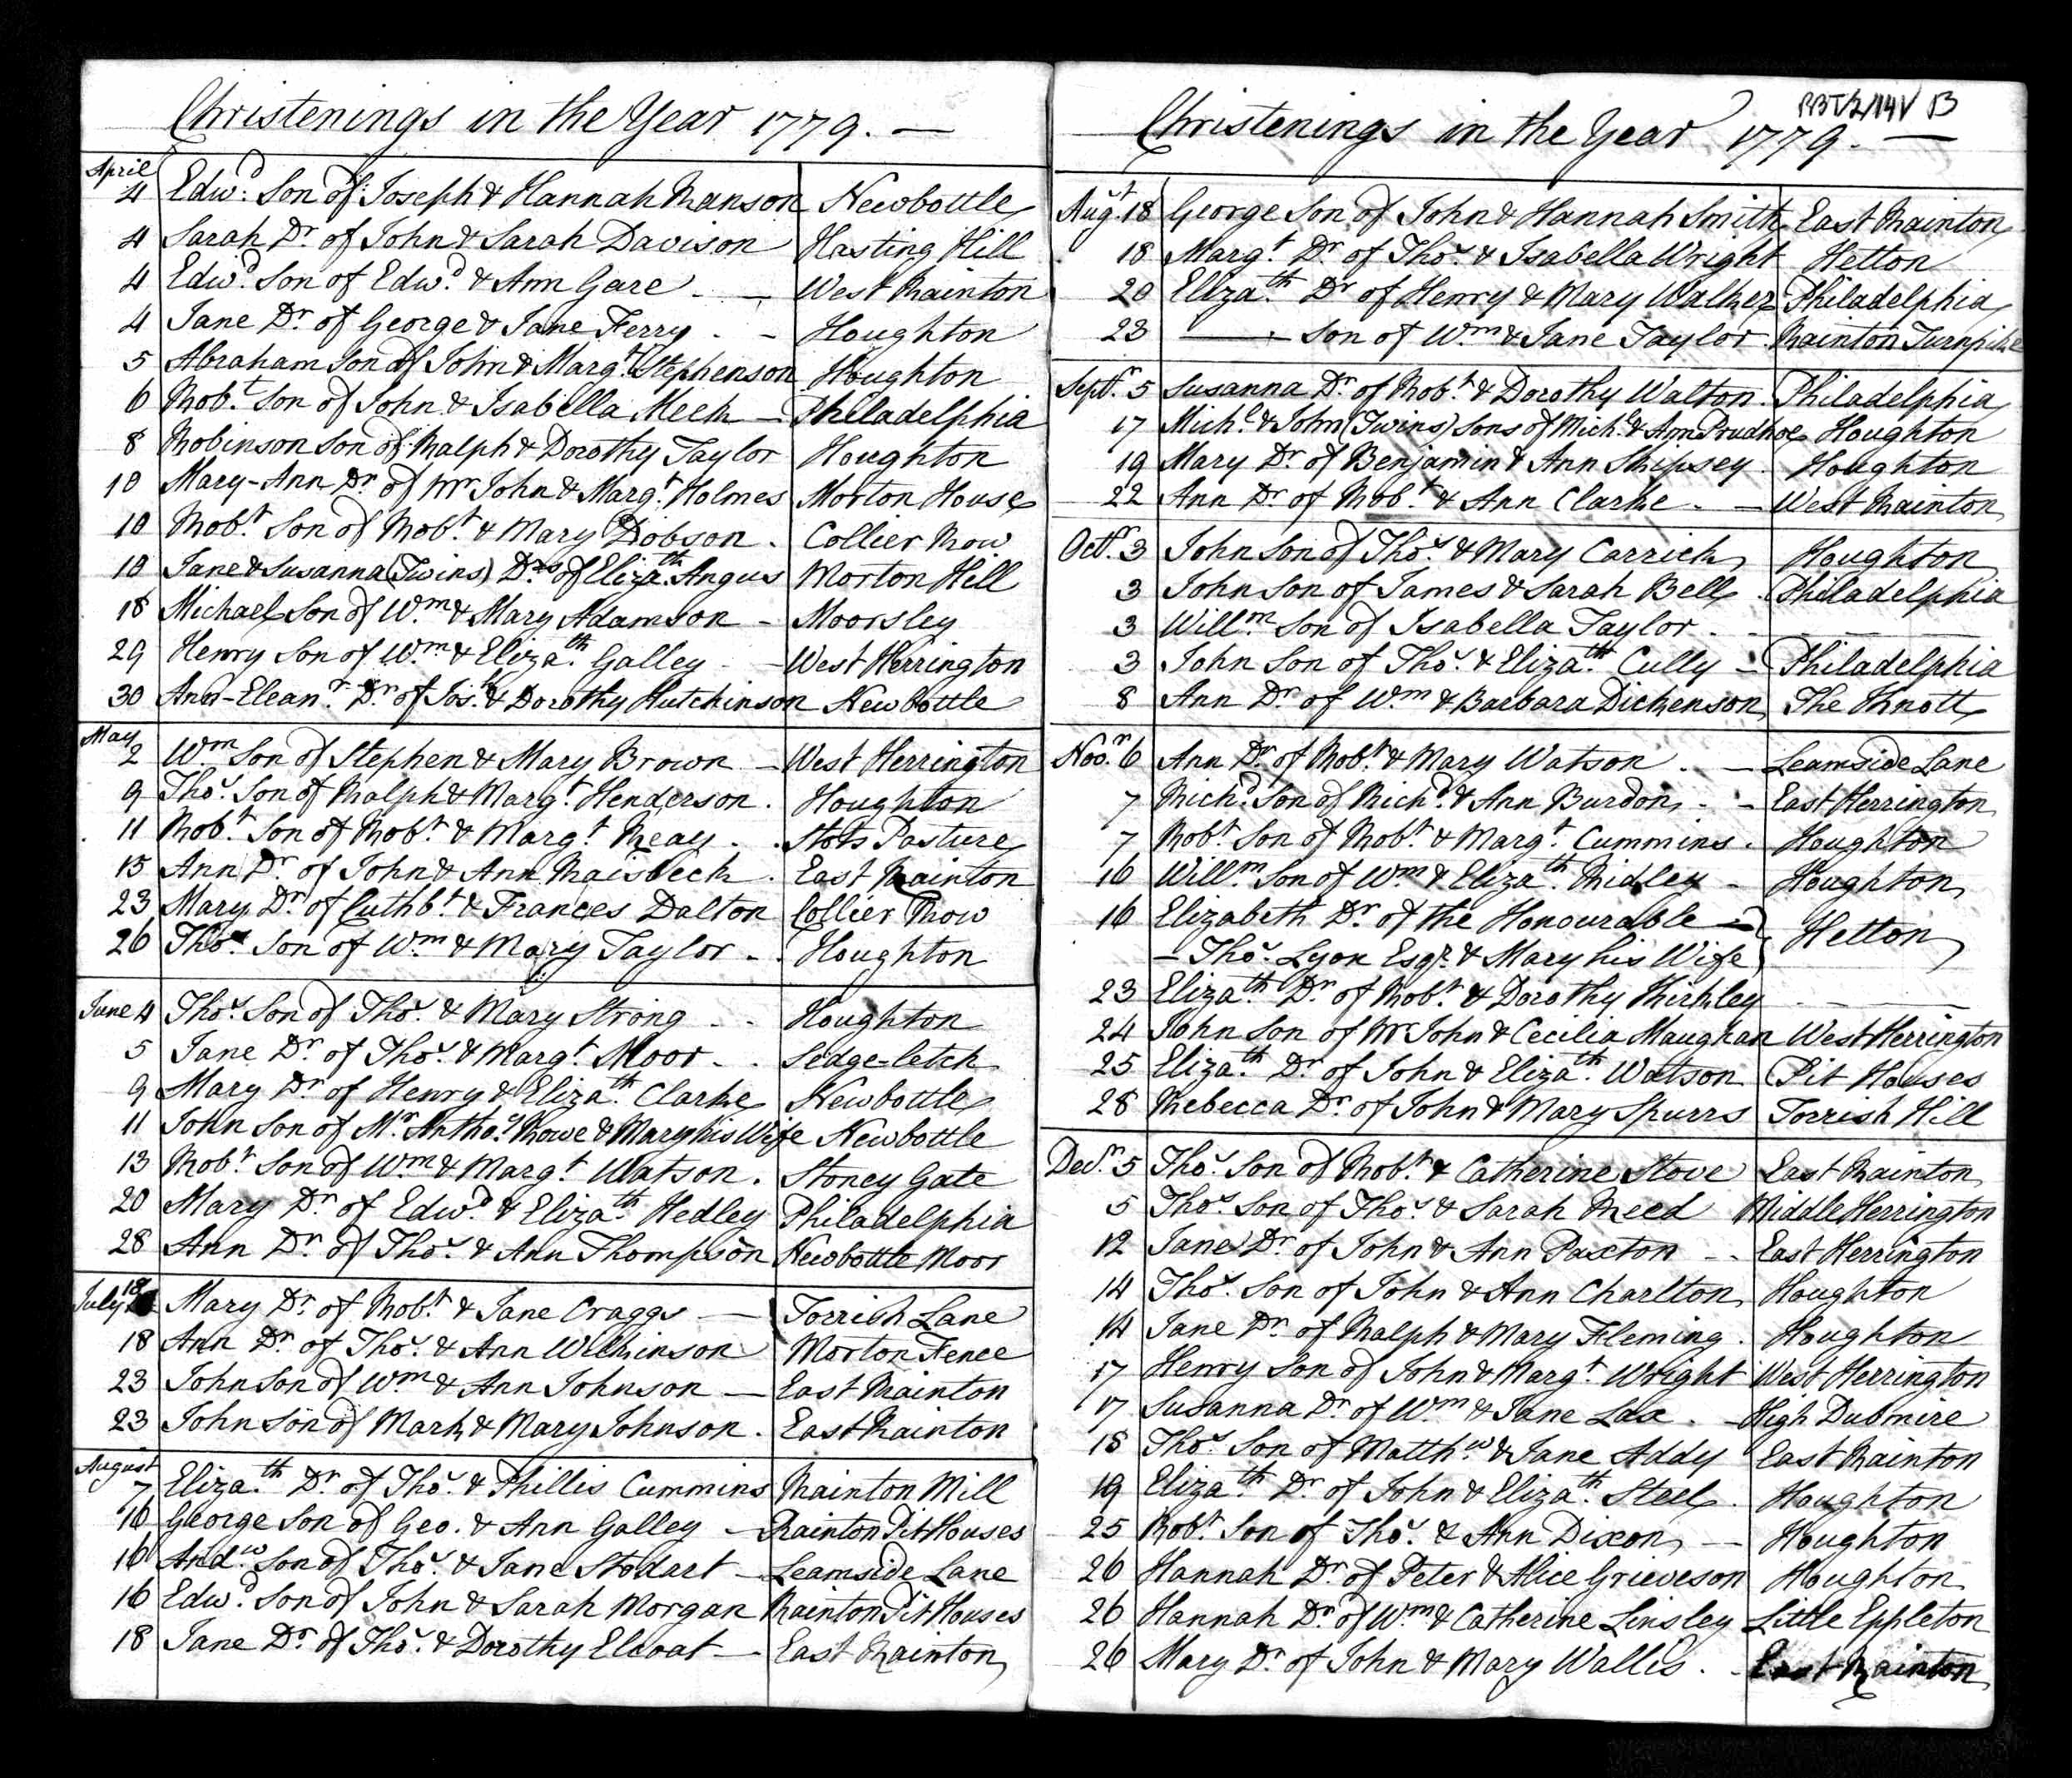 Christenings in the Year 1779. —
April
4 Edwd. Son of Joseph & Hannah Ranson Newbottle
4 Sarah Dr. of John & Sarah Davison Hasting Hill
4 Edwd. Son of Edwd. & Ann Gare - — West Rainton
4 Jane Dr. of George & Jane Ferry - - Houghton
5 Abraham Son of John & Margt. Stephenson Houghton
6 Robt. Son of John & Isabella Meek — Philadelphia
8 Robinson Son of Ralph & Dorothy Taylor Houghton
10 Mary-Ann Dr. of Mr John & Margt. Holmes Morton House
10 Robt. Son of Robt. & Mary Dobson . Collier Row
10 Jane & Susanna (Twins) Drs of Elizath. Angus Morton Hill
18 Michael Son of Wm. & Mary Adamson - Moorsley
29 Henry Son of Wm. & Elizath. Galley - — West Herrington
30 Ann-Eleanr. Dr. of Josh. & Dorothy Hutchinson Newbottle
May
2 Wm. Son of Stephen & Mary Brown — West Herrington
9 Thos. Son of Ralph & Margt. Henderson . Houghton
11 Robt. Son of Robt. & Margt. Reay . . Stots Pasture
15 Ann Dr. of John & Ann Raisbeck . East Rainton
23 Mary Dr. of Cuthbt. & Frances Dalton Collier Row
26 Thos. Son of Wm. & Mary Taylor - . Houghton
June 4 Thos. Son of Thos. & Mary Strong - - Houghton
5 Jane Dr. of Thos. & Margt. Moor - . Sedge-letch
9 Mary Dr. of Henry & Elizath. Clarke Newbottle
11 John Son of Mr. Anthoy. Rowe & Mary his Wife Newbottle
13 Robt. Son of Wm. & Margt. Watson . Stoney Gate
20 Mary Dr. of Edwd. & Elizath. Hedley Philadelphia
28 Ann Dr. of Thos. & Ann Thompson Newbottle Moor
July 18 Mary Dr. of Robt. & Jane Craggs — Forrish Lane
18 Ann Dr. of Thos. & Ann Wilkinson Morton Fence
23 John Son of Wm. & Ann Johnson — East Rainton
23 John Son of Mark & Mary Johnson . East Rainton
August
7 Elizath. Dr. of Thos. & Phillis Cummins Rainton Mill
16 George Son of Geo. & Ann Galley — Rainton Pit Houses
16 Andw. Son of Thos. & Jane Stodart — Leamside Lane
16 Edwd. Son of John & Sarah Morgan Rainton Pit Houses
18 Jane Dr. of Thos. & Dorothy Elcoat — East Rainton
Christenings in the Year 1779. —
Augt. 18 George Son of John & Hannah Smith East Rainton
18 Margt. Dr. of Thos. & Isabella Wright Hetton
20 Elizath. Dr of Henry & Mary Walker Philadelphia
23 ——— Son of Wm. & Jane Taylor . Rainton Turnpike
Septr. 5 Susanna Dr. of Robt. & Dorothy Walton . Philadelphia
17 Michl. & John (Twins) Sons of Michl. & Ann Prudhoe Houghton
19 Mary Dr. of Benjamin & Ann Shipsey . Houghton
22 Ann Dr. of Robt. & Ann Clarke . — West Rainton
Octr. 3 John Son of Thos. & Mary Carrick Houghton
3 John Son of James & Sarah Bell . Philadelphia
3 Willm. Son of Isabella Taylor . - — —
3 John Son of Thos. & Elizath. Cully — Philadelphia
8 Ann Dr. of Wm. & Barbara Dickenson The Knott
Novr. 6 Ann Dr. of Robt. & Mary Watson . — Leamside Lane
7 Richd. Son of Richd. & Ann Burdon - - East Herrington
7 Robt. Son of Robt. & Margt. Cummins . Houghton
16 Willm. Son of Wm. & Elizath. Ridley - Houghton
16 Elizabeth Dr. of the Honourable —
— Thos. Lyon Esqr. & Mary his Wife } Hetton
23 Elizath. Dr. of Robt. & Dorothy Kirkley - — —
24 John Son of Mr John & Cecilia Maughan West Herrington
25 Elizath. Dr. of John & Elizath. Watson Pit Houses
28 Rebecca Dr. of John & Mary Spurrs Forrish Hill
Decr. 5 Thos. Son of Robt. & Catherine Stove East Rainton
5 Thos. Son of Thos. & Sarah Reed Middle Herrington
12 Jane Dr. of John & Ann Paxton - - East Herrington
14 Thos. Son of John & Ann Charlton Houghton
14 Jane Dr. of Ralph & Mary Fleming . Houghton
17 Henry Son of John & Margt. Wright West Herrington
17 Susanna Dr. of Wm. & Jane Lax . - High Dubmire
18 Thos. Son of Matthw. & Jane Addy East Rainton
19 Elizath. Dr. of John & Elizath. Steel . Houghton
25 Robt. Son of Thos. & Ann Dixon — Houghton
26 Hannah Dr. of Peter & Alice Grieveson Houghton
26 Hannah Dr. of Wm. & Catherine Linsley Little Eppleton
26 Mary Dr. of John & Mary Wallis . - East Rainton